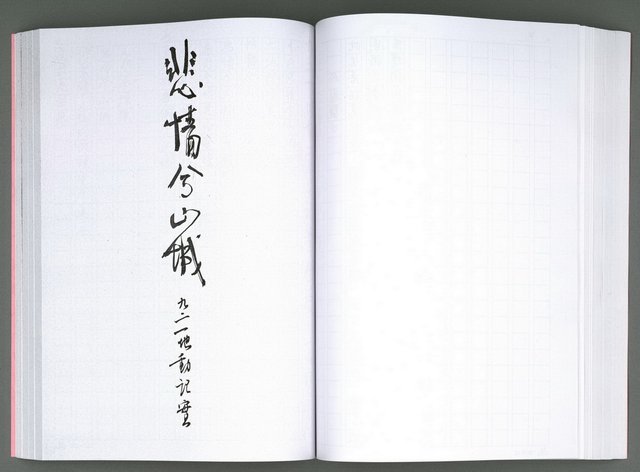 悲情兮山城
九二一地動記實